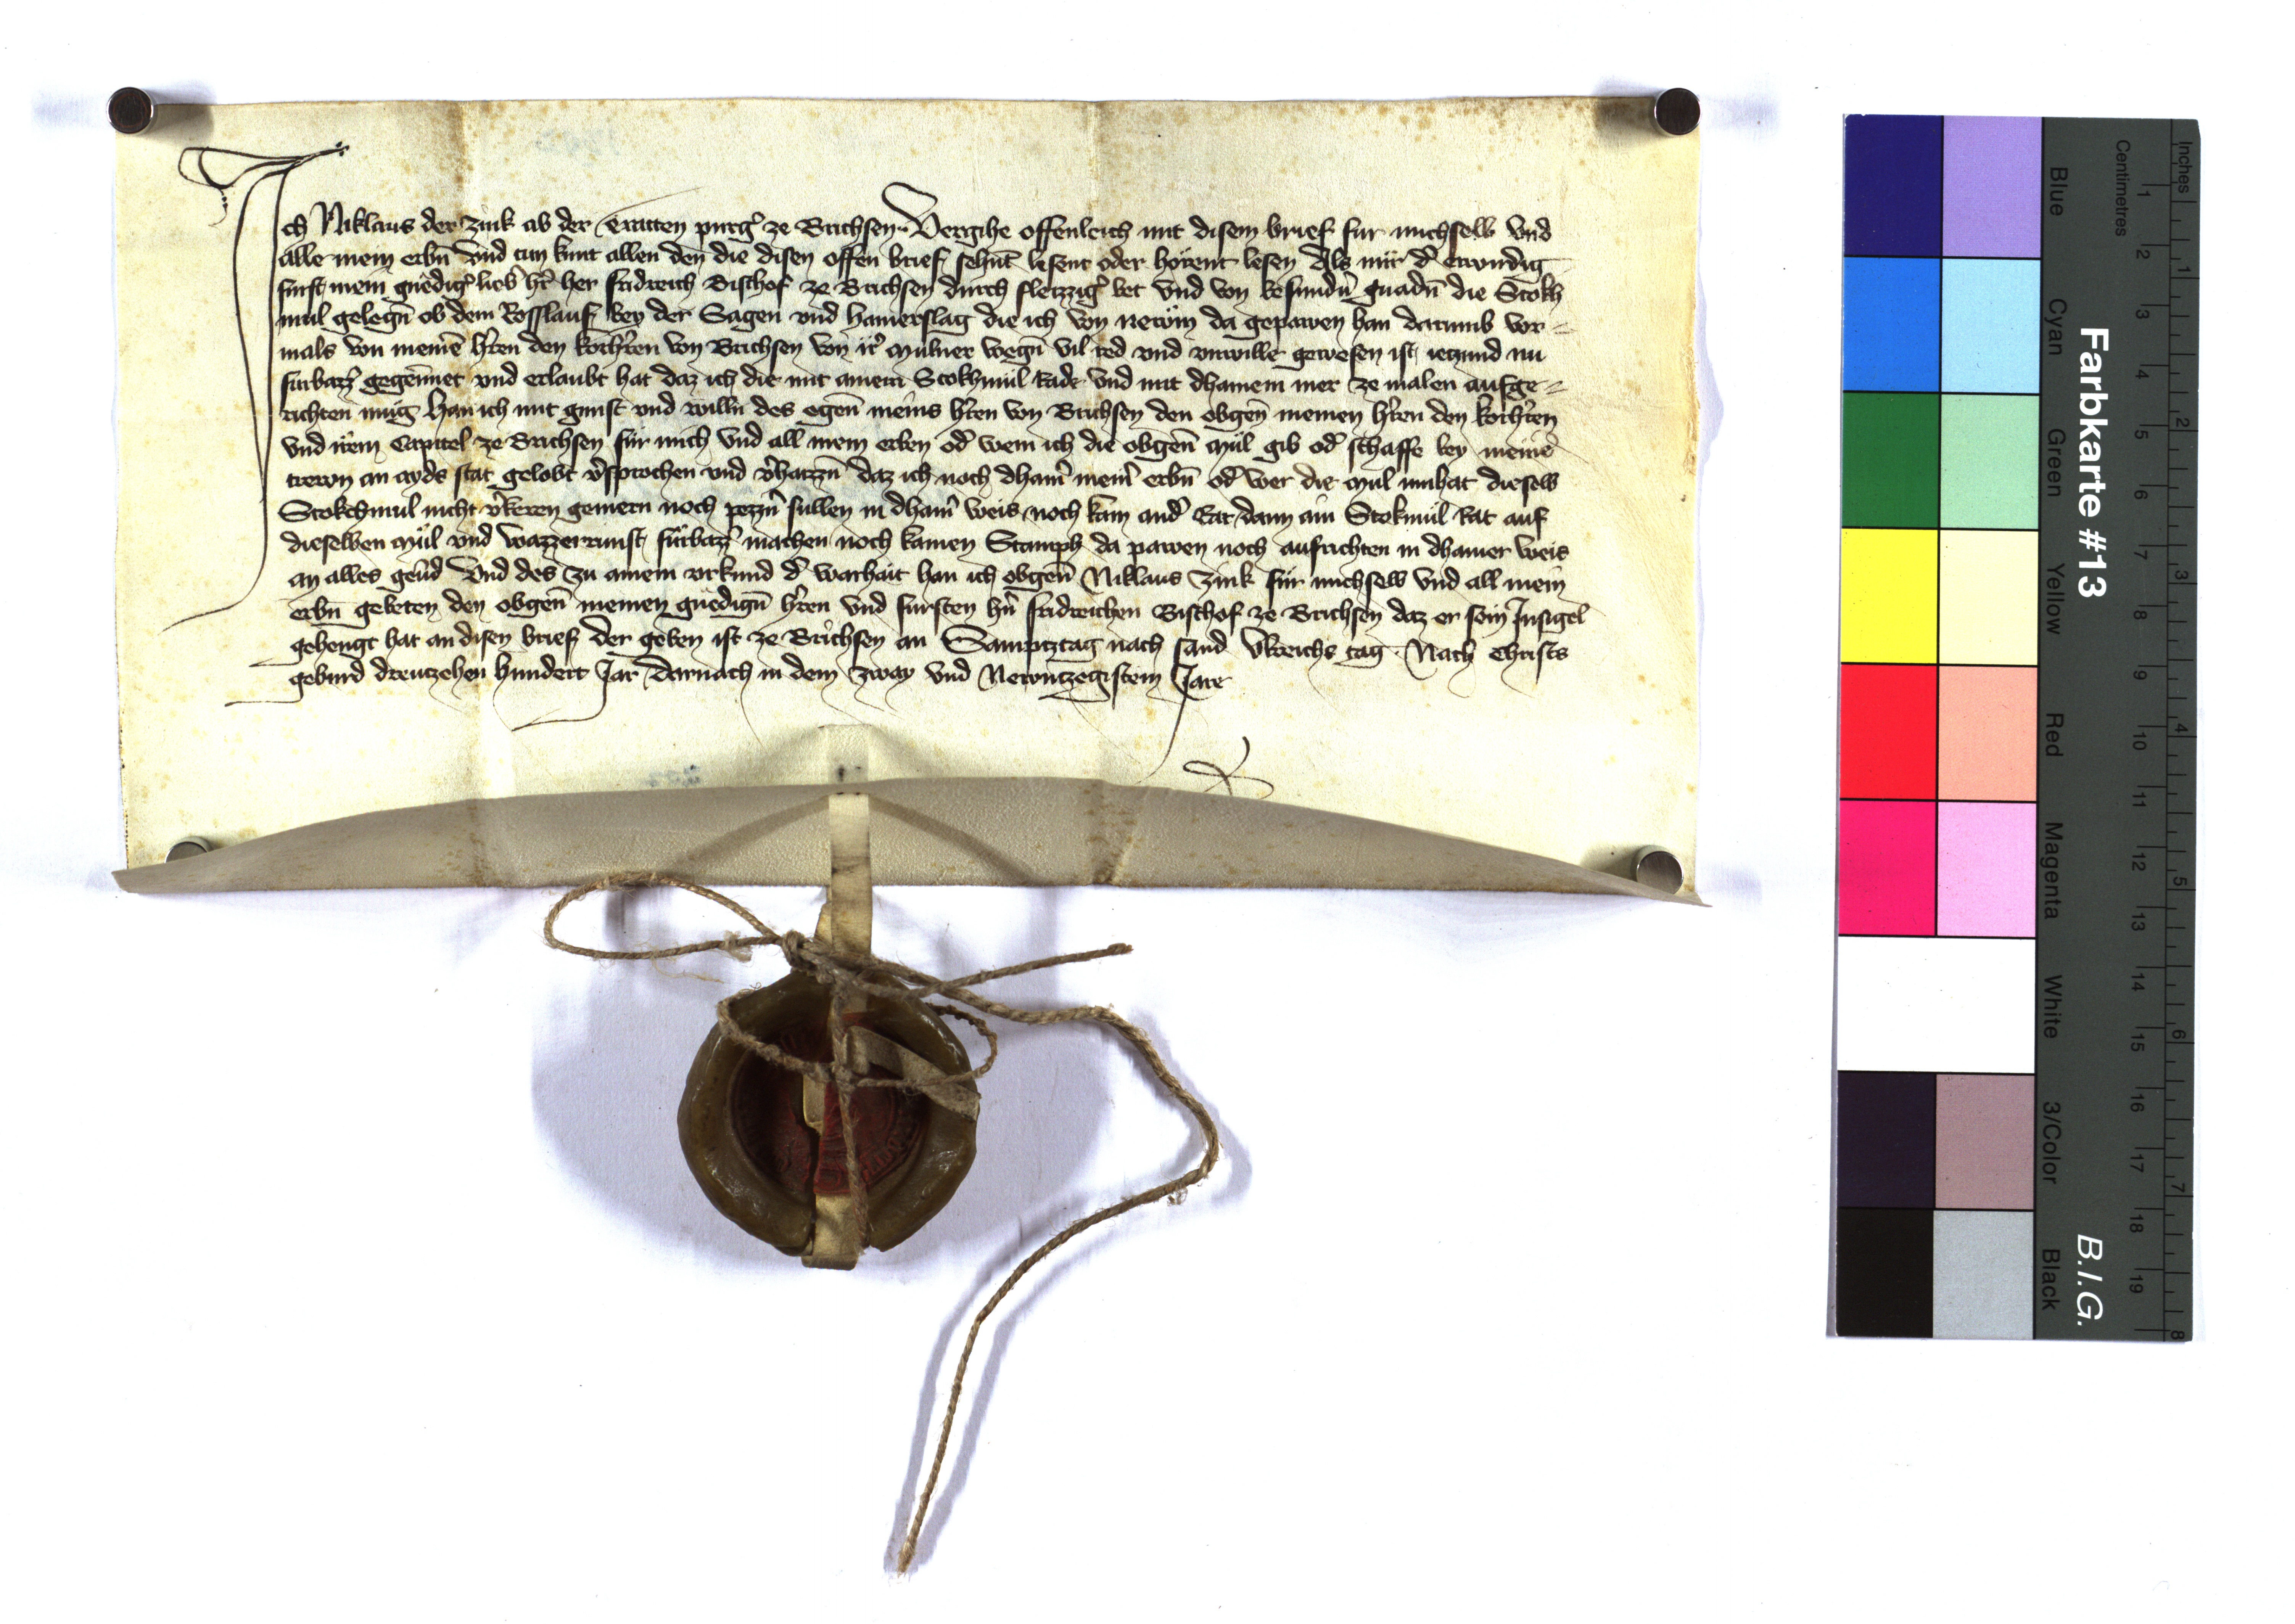 Ich Niklaus der Zink ab der Tratten purg̉ ze Brichsen Vergihe offenleich mit disem brief für michselb vnd
alle mein erbn̄ vnd tun kunt allen den̄ die disen offen brief sehnt̄ lesent oder hörent lesen Als mir d̉ erwirdig
fürst mein gnedig̉ lieb̉ hr̉ her Fridreich Bischof ze Brichsen durch fleizzig̉ bet vnd von besundn̉ gnadn̄ die Stokh
mül gelegn̄ ob dem Rosslauf bey der Sagen vnd hamerslag die ich von newm da gepawen han darumb vor⸗
mals von meine̅ hr̉en den korhr̉en von Brichsen von ir̉ mulner wegn̄ vil red vnd vnwille gewesen ist ieczund nu
fürbazz̉ gegennet vnd erlaubt hat daz ich die mit ainem Stokhmül Rade vnd mit dhainem mer ze malen aufge⸗
richten mug Han ich mit gunst vnd willn̄ des egen̄ meins hr̉en von Brichsen den obgen̄ meinen hr̉en den korhr̉en
vnd irem Capitel ze Brichsen für mich vnd all mein erben od̉ wem ich die obgen̄ mül gib od̉ schaffe bey meine̅
trewn an ayds stat gelobt v̉sprochen vnd v̉haizzn̄ daz ich noch dhain̉ mein̉ erbn̄ od̉ wer die mul innhat dieselb
Stokchmul nicht v̉keren gemern noch pezzn̉ sullen in dhain̉ weis noch kain and̉ Rat dann ain Stokmül Rat auf
dieselben mül vnd wazzerrunst fürbazz̉ machen noch kainen Stamph da pawen noch aufrichten in dhainer weis
an alles geu̅d Vnd des zu ainem vrkund d̉ warhait han ich obgen̄ Niklaus Zink für michselb vnd all mein
erbn̄ gebeten den obgen̄ meinen gnedign̄ hr̉en vnd fürsten hn̉ Fridreichen Bischof ze Brichsen daz er sein Insigel
gehengt hat an disen brief der geben ist ze Brichsen an Sampcztag nach sand Vlreichs tag Nach Christs
geburd dreuczehen hundert Jar darnach in dem zway vnd Newnczegistem Jare
Farbkarte #13
B.I.G.
Blue
Cyan
Green
Yellow
Red
Magenta
White
3/Color
Black
Centimetres
1 2 3 4 5 6 7 8 9 10 11 12 13 14 15 16 17 18 19
Inches
1 2 3 4 5 6 7 8